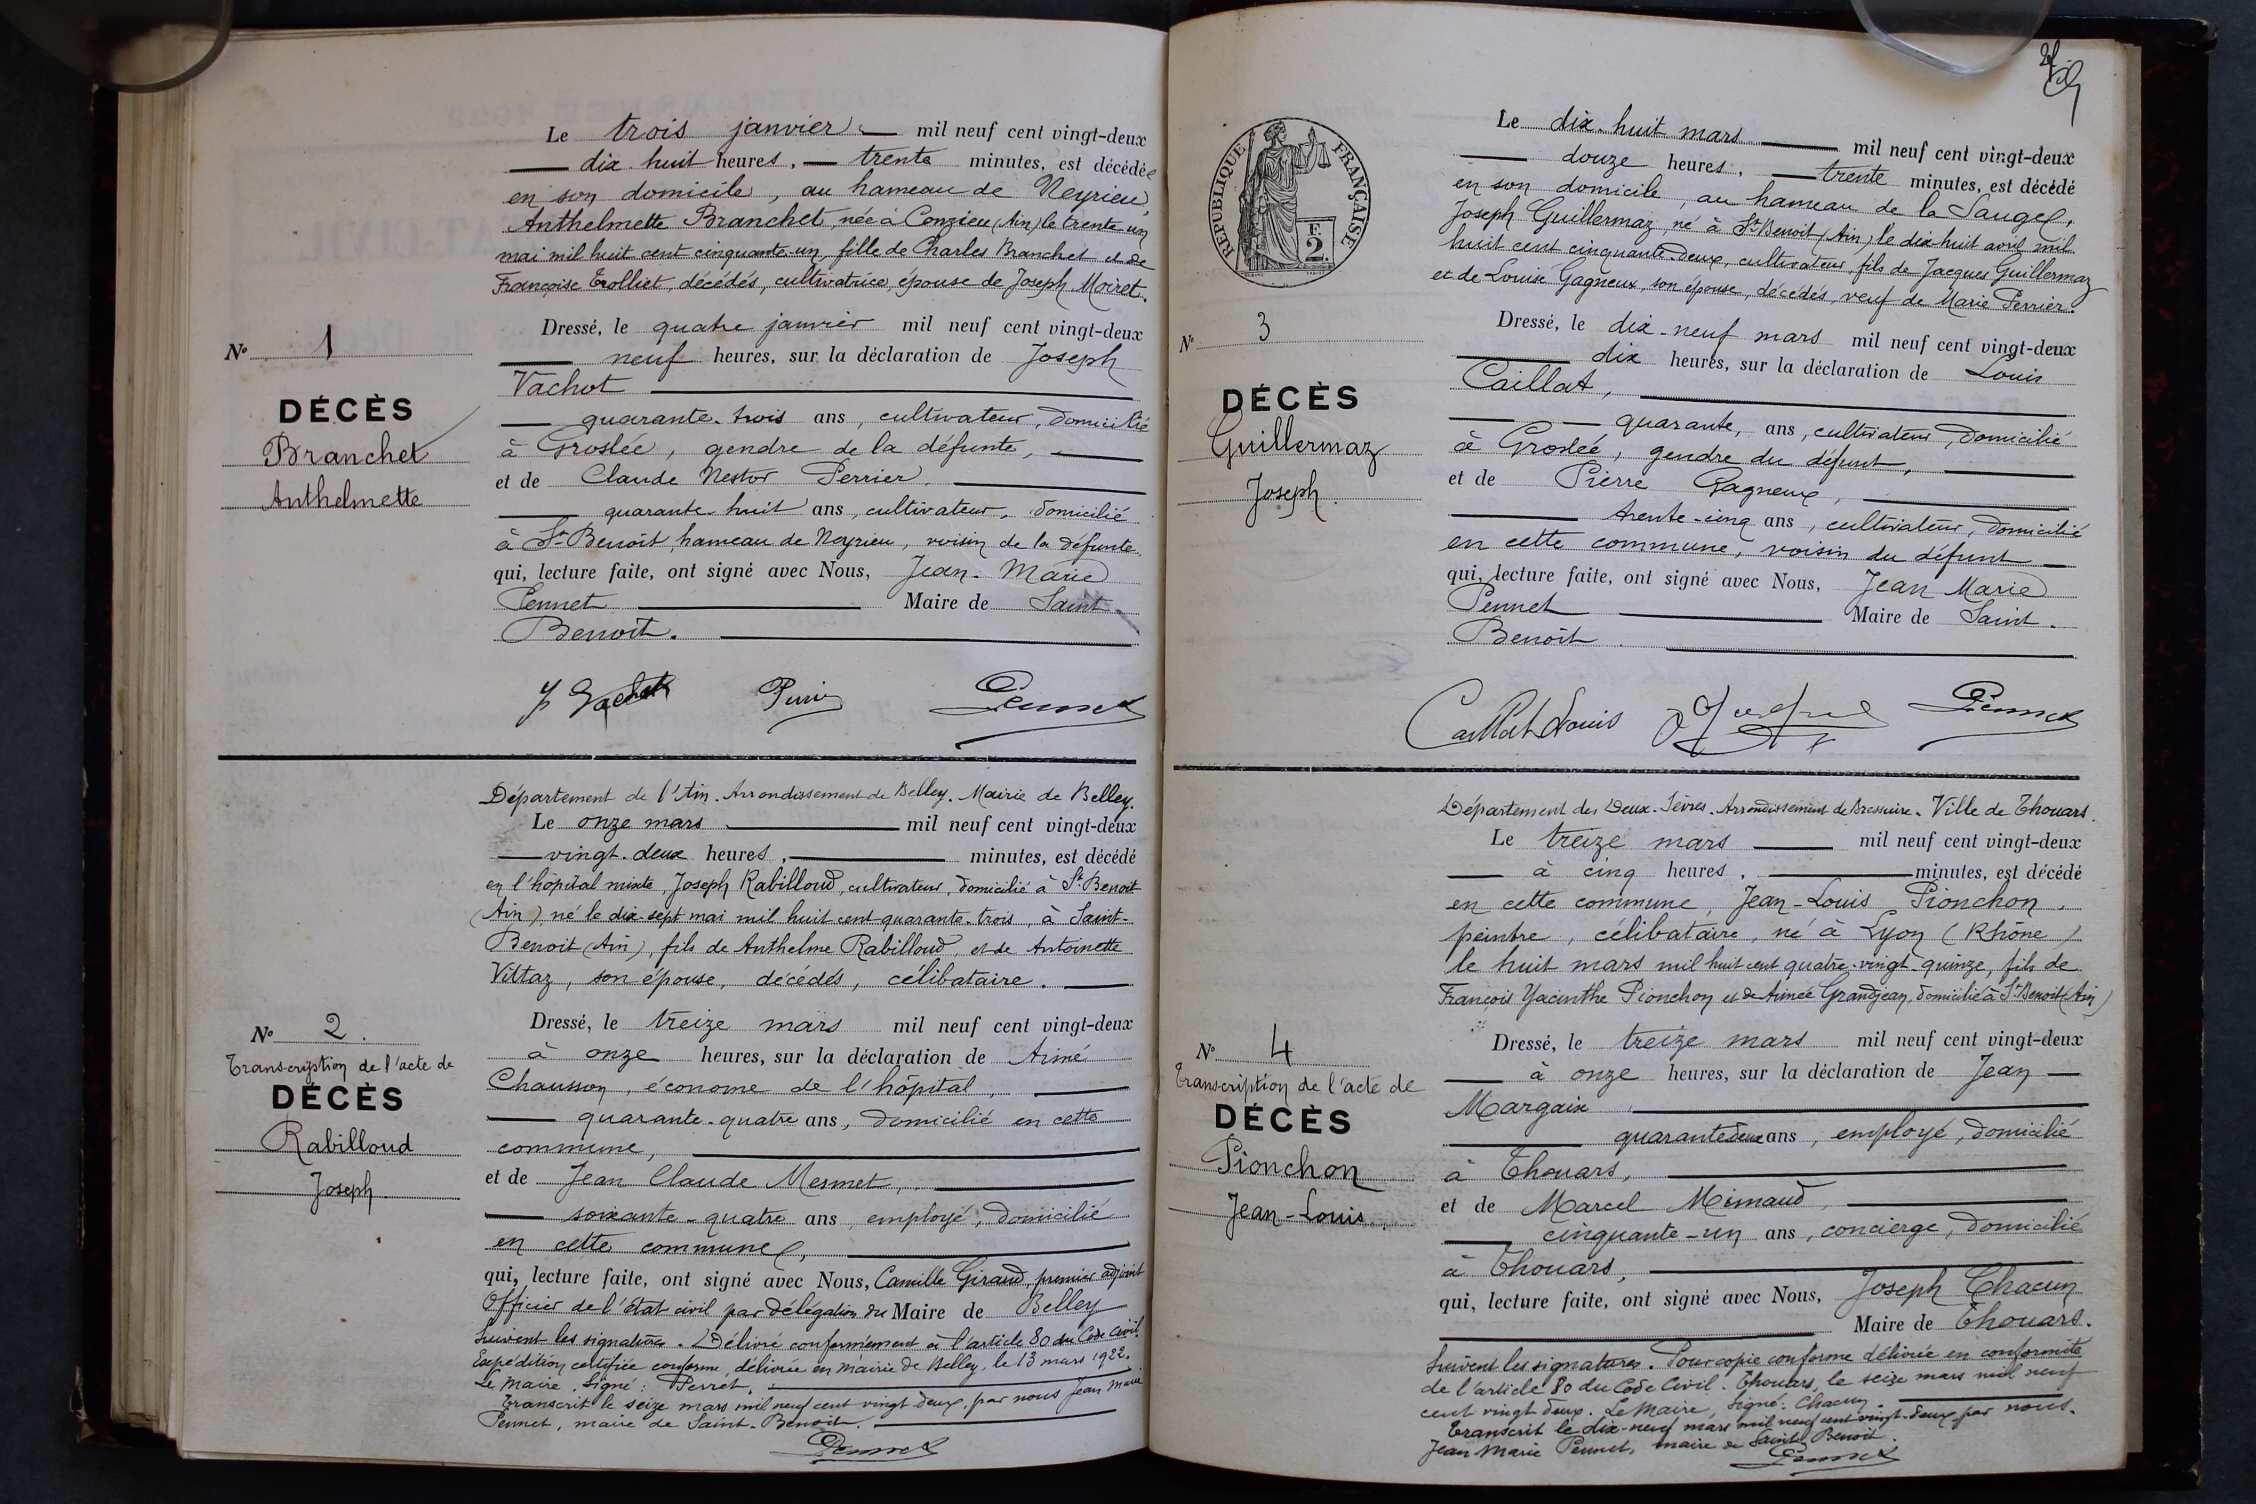 Le trois janvier mil neuf cent vingt-deux
dix huit heures, trente minutes, est décédée
en son domicile, au hameau de Neyrieu,
Anthelmette Branchet, née à Conzieu (Ain) le trente un
mai mil huit cent cinquante-un, fille de Charles Branchet et de
Françoise Trolliet, décédés, cultivatrice, épouse de Joseph Moiret.
Dressé, le quatre janvier mil neuf cent vingt-deux
neuf heures, sur la déclaration de Joseph
Vachot
quarante-trois ans, cultivateur, domicilié
à Groslée, gendre de la défunte,
et de Claude Nestor Perrier.
quarante-huit ans, cultivateur, domicilié
à St-Benoît, hameau de Neyrieu, voisin de la défunte.
qui, lecture faite, ont signé avec Nous, Jean-Marie
Pennet Maire de Saint-
Benoît.
Nº 1
DÉCÈS
Branchet
Anthelmette
Pennet
Département de l'Ain. Arrondissement de Belley. Mairie de Belley.
Le onze mars mil neuf cent vingt-deux
vingt-deux heures, minutes, est décédé
en l'hôpital mixte, Joseph Rabilloud, cultivateur, domicilié à St Benoit
(Ain), né le dix-sept mai mil huit cent quarante-trois, à Saint-
Benoit (Ain), fils de Anthelme Rabilloud, et de Antoinette
Vittaz, son épouse, décédés, célibataire.
Dressé, le treize mars mil neuf cent vingt-deux
à onze heures, sur la déclaration de Aimé
Chausson, économe de l'hôpital,
quarante-quatre ans, domicilié en cette
commune,
et de Jean Claude Mermet,
soixante-quatre ans, employé, domicilié
en cette commune,
qui, lecture faite, ont signé avec Nous, Camille Giraud, premier adjoint
Officier de l'état civil par délégation du Maire de Belley
Suivent les signatures. Délivré conformément à l'article 80 du Code Civil.
Expédition certifiée conforme, délivrée en mairie de Belley, le 13 mars 1922.
Le Maire, Signé : Perret.
Transcrit le seize mars mil neuf cent vingt deux, par nous Jean Marie
Pennet, maire de Saint-Benoit.
Pennet
Nº 2.
Transcription de l'acte de
DÉCÈS
Rabilloud
Joseph.
RÉPUBLIQUE FRANÇAISE
F.
2.
Le dix-huit mars mil neuf cent vingt-deux
douze heures, trente minutes, est décédé
en son domicile, au hameau de la Sauge,
Joseph Guillermaz, né à St Benoit (Ain) le dix-huit avril mil
huit cent cinquante-deux, cultivateur, fils de Jacques Guillermaz
et de Louise Gagneux, son épouse, décédés, veuf de Marie Perrier.
Dressé, le dix-neuf mars mil neuf cent vingt-deux
dix heures, sur la déclaration de Louis
Caillat,
quarante, ans, cultivateur, domicilié
à Groslée, gendre du défunt,
et de Pierre Gagneux,
trente-cinq ans, cultivateur, domicilié
en cette commune, voisin du défunt
qui, lecture faite, ont signé avec Nous, Jean Marie
Pennet Maire de Saint-
Benoît.
Nº 3
DÉCÈS
Guillermaz
Joseph.
Caillat Louis Pennet
Département des Deux-Sèvres. Arrondissement de Bressuire. Ville de Thouars.
Le treize mars mil neuf cent vingt-deux
à cinq heures, minutes, est décédé
en cette commune, Jean-Louis Pionchon,
peintre, célibataire, né à Lyon (Rhône)
le huit mars mil huit cent quatre-vingt-quinze, fils de
François Yacinthe Pionchon et de Aimée Grandjean, domicilié à St Benoit (Ain)
Dressé, le treize mars mil neuf cent vingt-deux
à onze heures, sur la déclaration de Jean
Margaix
quarante deux ans, employé, domicilié
à Thouars,
et de Marcel Mimaud,
cinquante-un ans, concierge, domicilié
à Thouars,
qui, lecture faite, ont signé avec Nous, Joseph Chacun
Maire de Thouars.
Suivent les signatures. Pour copie conforme délivrée en conformité
de l'article 80 du Code Civil. Thouars, le seize mars mil neuf
cent vingt deux. Le Maire, Signé : Chacun.
Transcrit le dix-neuf mars mil neuf cent vingt-deux par nous.
Jean Marie Pennet, maire de Saint Benoit.
Pennet
Nº 4
Transcription de l'acte de
DÉCÈS
Pionchon
Jean-Louis.